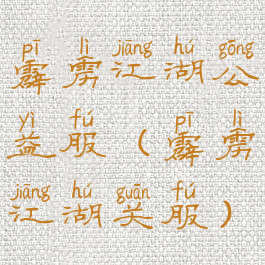 pī lì jiāng hú gōng
霹雳江湖公
yì fú pī lì
益服（霹雳
jiāng hú guān fú
江湖关服）